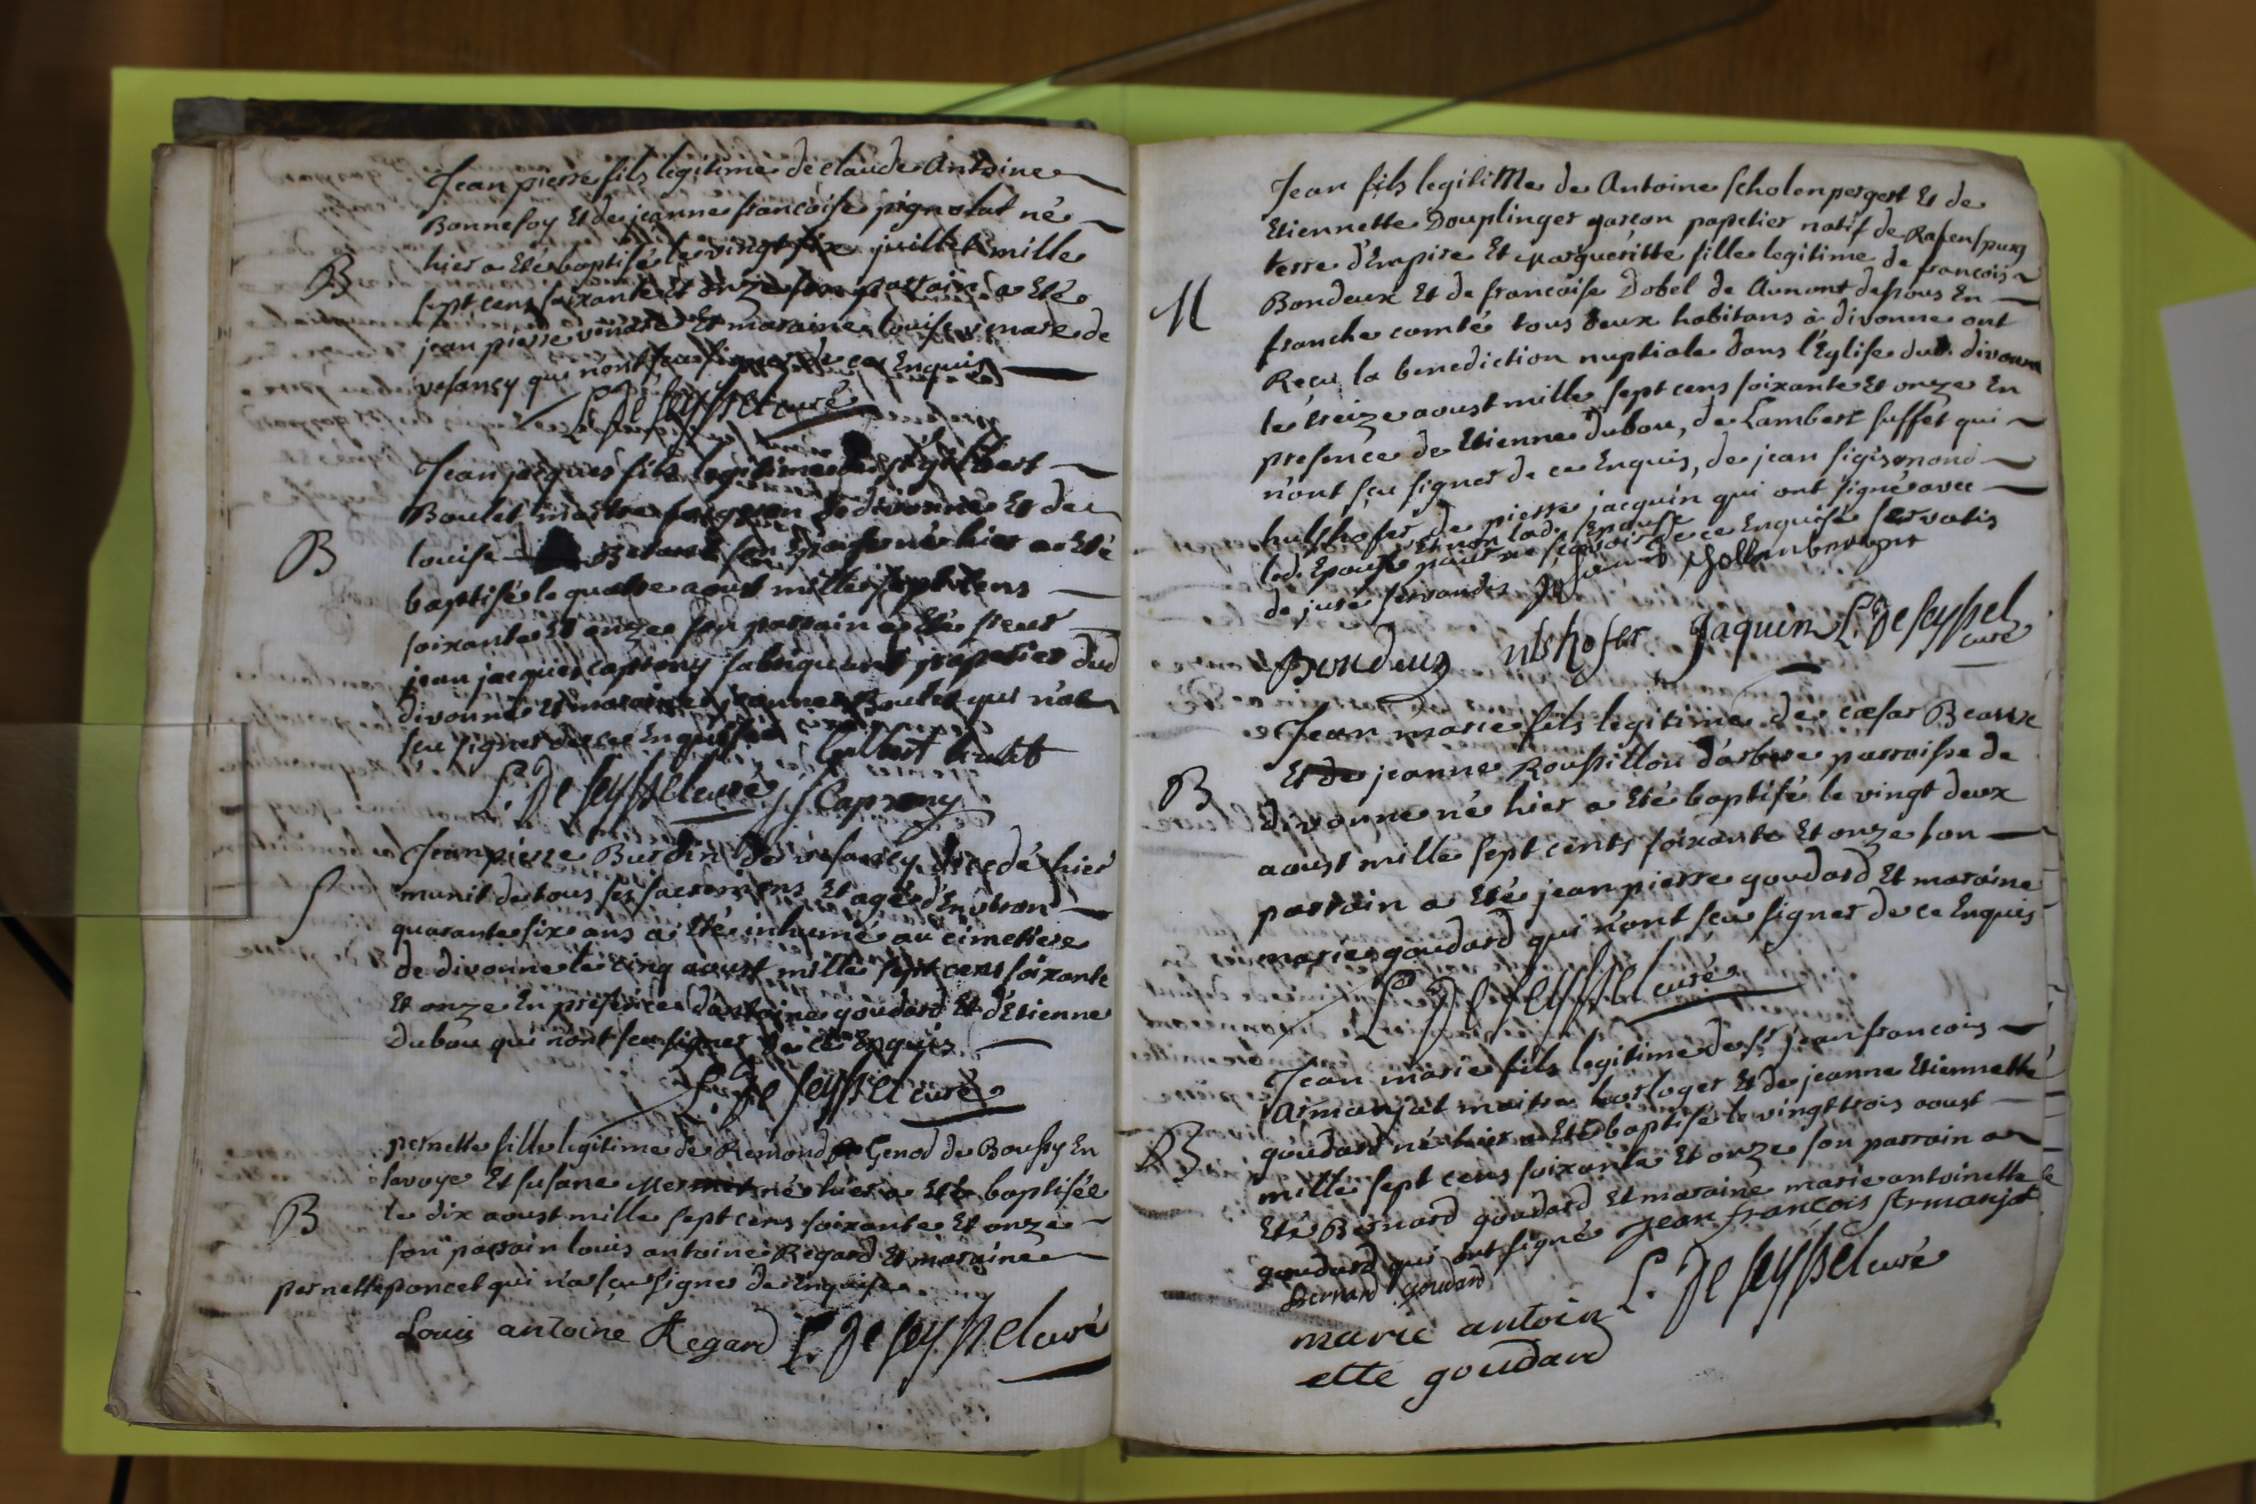 Jean pierre fils legitime de claude Antoine
Bonnefoy Et de jeanne francoise pignolat né
hier a Eté baptisé le vingt six juillet mille
B
sept cens soixante Et onze son parrain a Eté
jean pierre vinare Et maraine louise vinare de
vesancy qui n'ont sçu signer de ce Enquis
L. De seyssel curé
Jean jacques fils legitime de gilbert
Boulet maitre de divonne Et de
B
louise Berard son Epouse né hier a Eté
baptisé le quatre aoust mille sept cens
soixante Et onze son parrain a Eté sieur
jean jacques caprony fabriquant papetier dud
divonne Et maraine jeanne Boulet qui n'at
sçu signer de ce Enquise
Gilbert boulet
L. De seyssel curé
JJ Caprony
Jean pierre Burdin de vesancy decedé hier
S
munit de tous ses sacremens Et agé d'Environ
quarante six ans a Eté inhumé au cimetiere
de divonne le cinq aoust mille sept cens soixante
Et onze En presence d'antoine goudard Et d'Etienne
Dubou qui n'ont sçu signer de ce Enquis
L. De seyssel curé
pernette fille legitime de Remond Genod de Boussy En
savoye Et susane Mermet né hier a Eté baptisée
B
le dix aoust mille sept cens soixante Et onze
son parrain louis antoine Regard Et maraine
pernette poncet qui n'a sçu signer de Enquise
Louis antoine Regard
L. De seyssel curé
Jean fils legitiMe de Antoine scholenpergert Et de
Etiennette Douplinger garcon papetier natif de Rafenspurg
terre d'Empire Et Margueritte fille legitime de francois
M
Bondeux Et de francoise Dobel de Aumont dessous En
franche comté tous deux habitans à divonne ont
Reçu la benediction nuptiale dans l'Eglise dud. divonne
le treize aoust mille sept cens soixante Et onze En
presence de Etienne Dubou, de Lambert suffet qui
n'ont sçu signer de ce Enquis, de jean sigismond
hulshofer de pierre jacquin qui ont signé avec
led. Epoux Et non lad. Epouse pour ne sçavoir de ce Enquise servatis
de jure servandis
Johannes schollenbergert
Bondeux
ulshofer
Jaquin
L. De seyssel
curé
Jean marie fils legitime de cæsar Bearve
Et de jeanne Roussillon d'arbere parroisse de
B
divonne né hier a Eté baptisé le vingt deux
aoust mille sept cents soixante Et onze son
parrain a Eté jean pierre goudard Et maraine
marie goudard qui n'ont sçu signer de ce Enquis
L. De seyssel curé
Jean marie fils legitime de sr jean francois
Armanjat maitre horloger Et de jeanne Etiennette
goudard né hier a Eté baptisé le vingt trois aoust
B
mille sept cens soixante Et onze son parrain a
Eté Bernard goudard Et maraine marie antoinette
goudard qui ont signé
Jean françois Armanjat
Bernard goudard
L. De seyssel curé
marie antoin
ette goudard